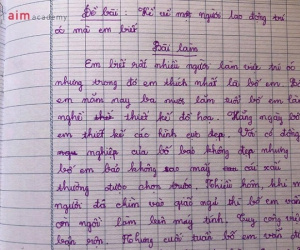 aim academy
Đề bài : Kể về một người lao động trí
óc mà em biết
Bài làm
Em biết rất nhiều người làm việc trí óc
nhưng trong đó em thích nhất là bố em. Bố
em năm nay ba mươi lăm tuổi bố em làm
nghề thiết kế đồ họa. Hằng ngày bố
em thiết kế các hình cực đẹp. Với cô đồng
nghiệp của bố bảo không đẹp nhưng
bố em bảo không sao mấy cái xấu
thường được chọn trước. Nhiều hôm, khi mọi
người đã chìm vào giấc ngủ thì bố em vẫn
còn ngồi làm bên máy tính. Tuy công việc
bận rộn. Nhưng cuối tuần bố em vẫn